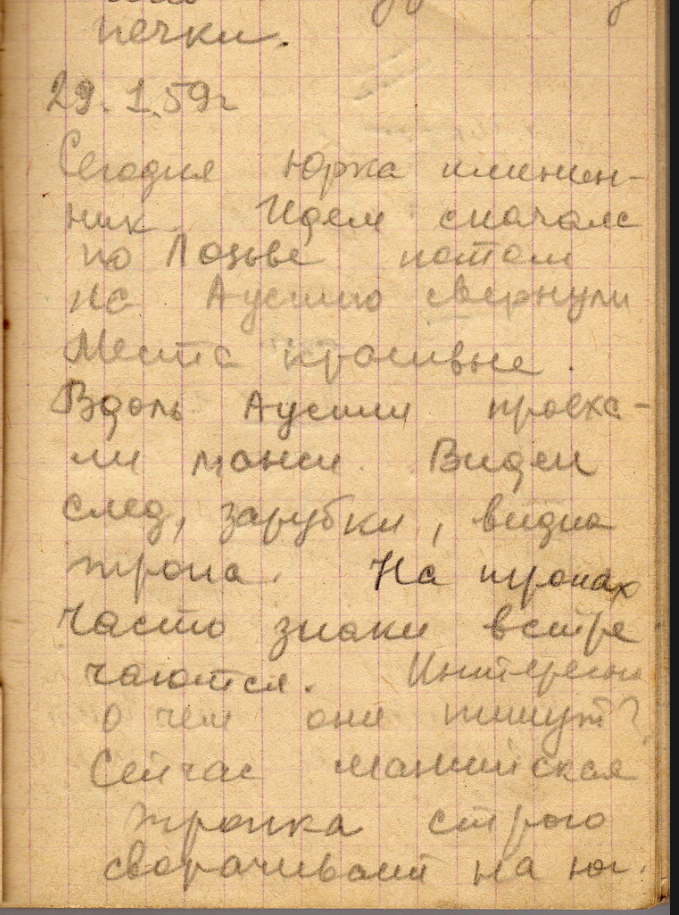 печки.
29.1.59г
Сегодня Юрка именин-
ник. Идем сначала
по Лозьве потом
на Ауспию свернули
Места красивые.
Вдоль Ауспии проеха-
ли манси. Виден
след, зарубки, видна
тропа. На тропах
часто знаки встре
чаются. Интересно
о чем они пишут?
Сейчас мансийская
тропка строго
сворачивает на юг.